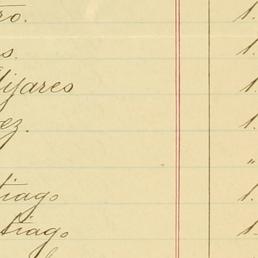 ro. 1.
s. 1.
lijares 1.
ez. 1.
"
tiago 1.
tiago 1.